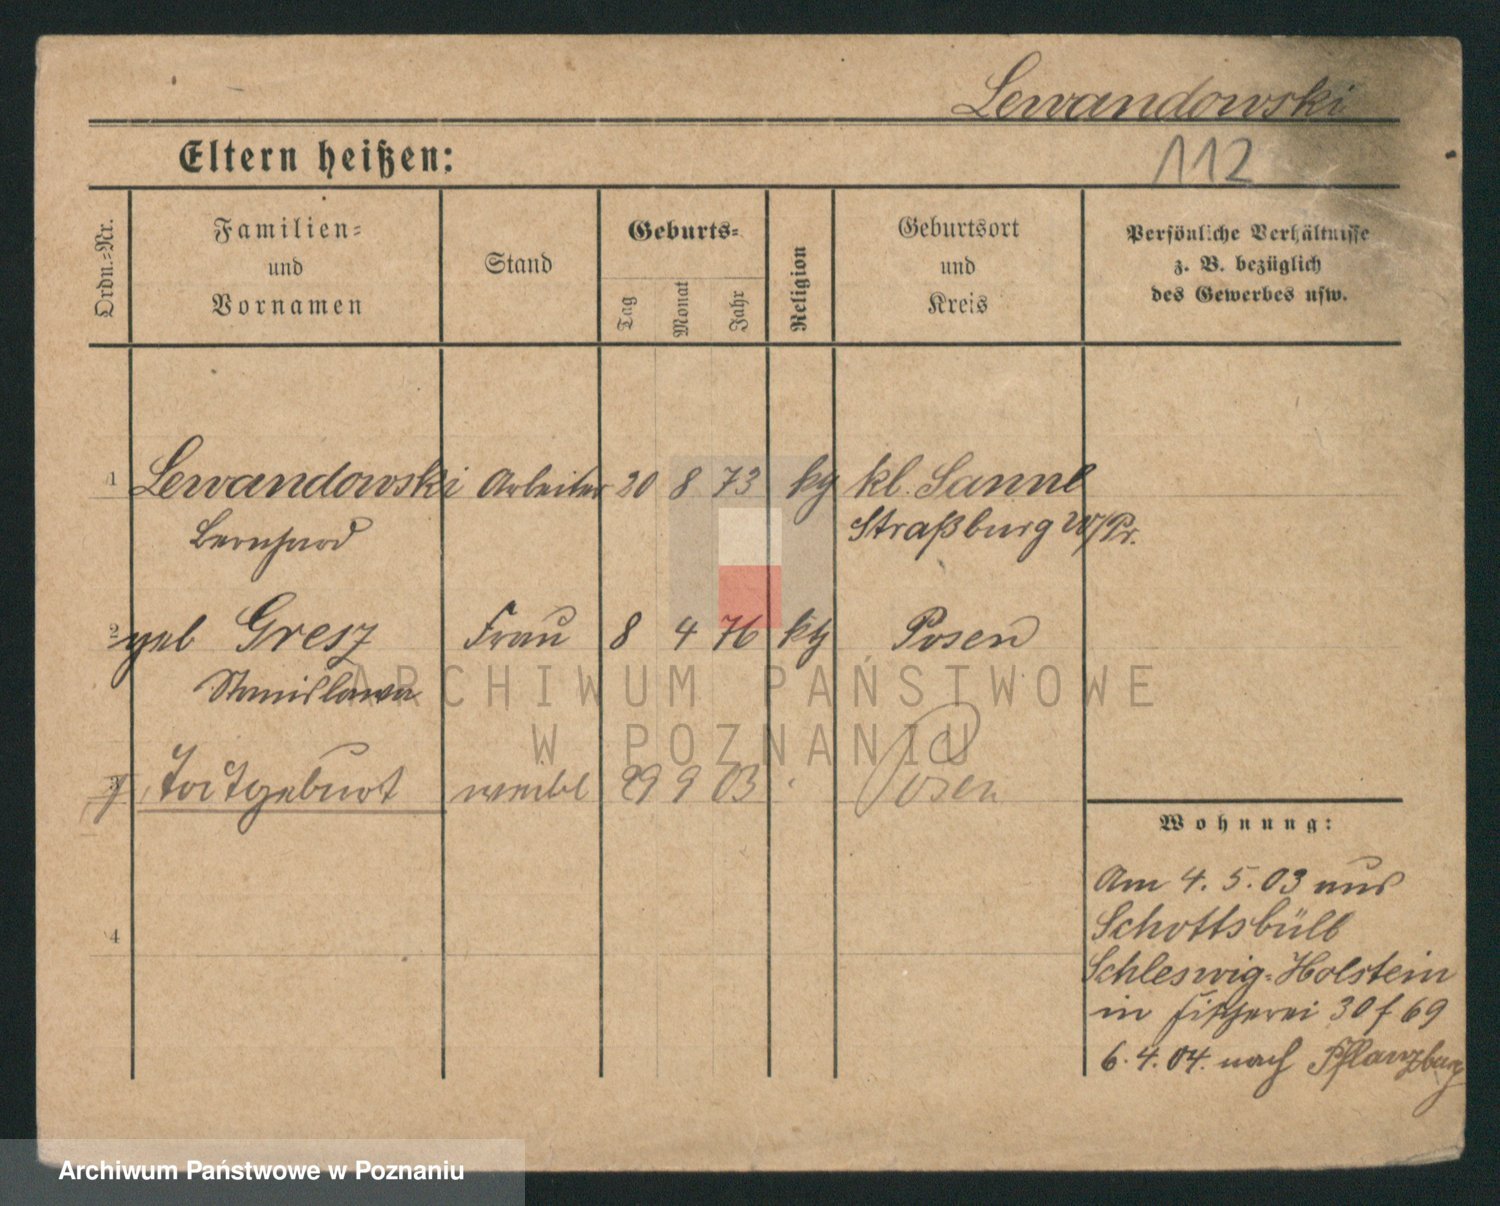 Lewandowski
112
Eltern heißen:
Ordn.=Nr.
Familien=
und
Vornamen
Stand
Geburts=
Tag
Monat
Jahr
Religion
Geburtsort
und
Kreis
Persönliche Verhältnisse
z. B. bezüglich
des Gewerbes usw.
1 Lewandowski Arbeiter 20 8 73 kg kl. Sanne
Bernhard Straßburg W/Pr.
2 geb Gresz Frau 8 4 76 ktg Posen
Stanislawa
3 Totgeburt weibl 29 9 03 Posen
4
Wohnung:
Am 4. 5. 03 aus
Schottsbüll
Schleswig=Holstein
in Fischerei 30 f 69
6. 4. 04. nach Pflanzburg
ARCHIWUM PAŃSTWOWE
W POZNANIU
Archiwum Państwowe w Poznaniu